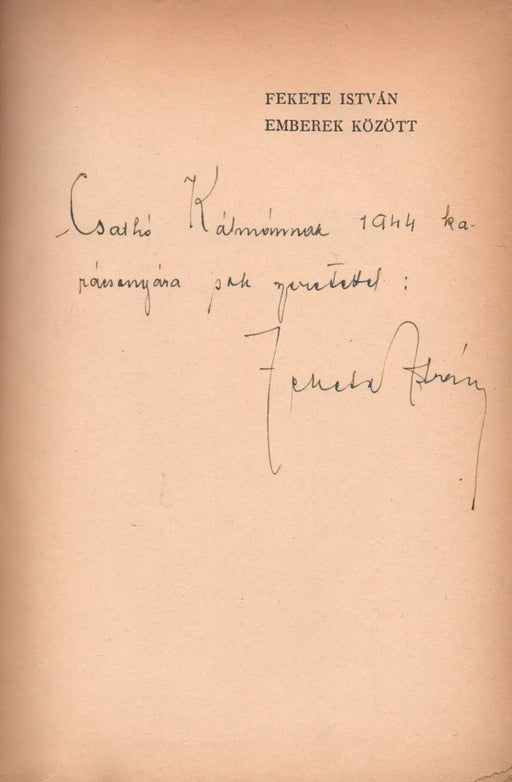 FEKETE ISTVÁN
EMBEREK KÖZÖTT
Csathó Kálmánnak 1944 ka-
rácsonyára sok szeretettel :
Fekete István